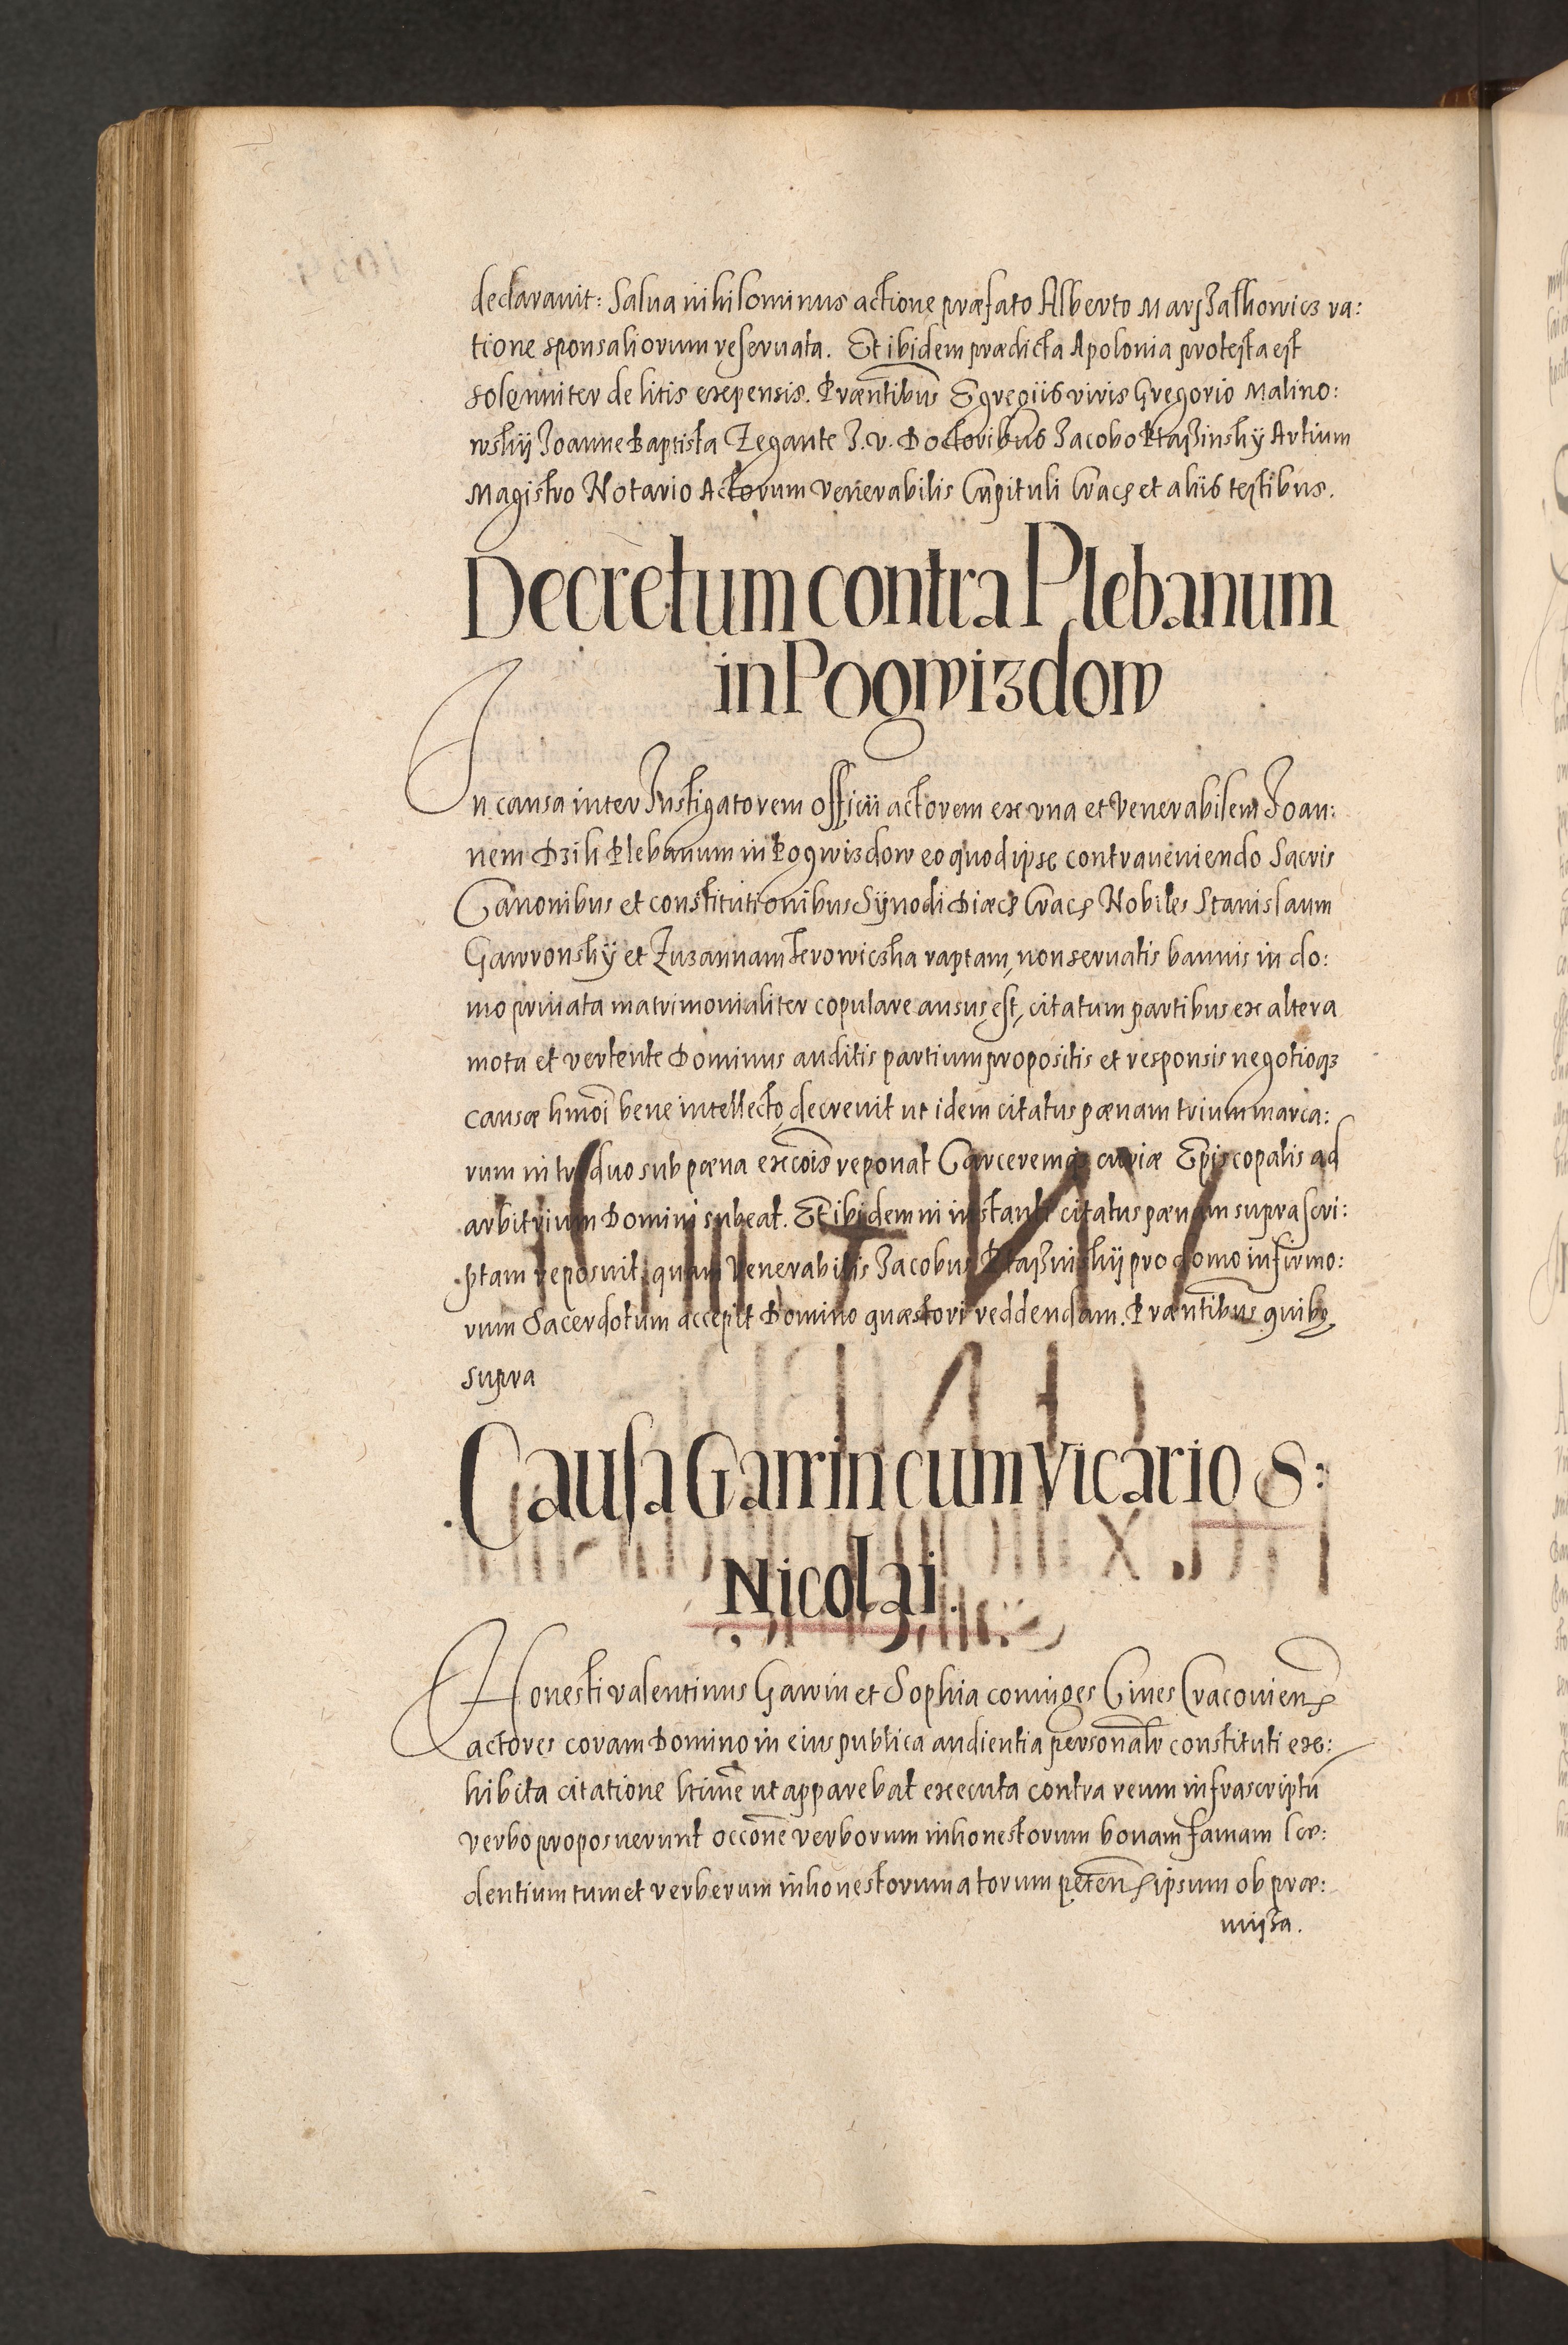 declarauit: Salua nihilominus actione præfato Alberto Marszalkowicz ra:
tione sponsaliorum reseruata. Et ibidem prædicta Apolonia protesta est
solenniter de litis expensis. Præntibus Egregiis viris Gregorio Malino:
wskÿ Joanne Baptista Zegante J. V. Doctoribus Jacobo Ptaszinskÿ Artium
Magistro Notario Actorum Venerabilis Capituli Crac et aliis testibus.
Decretum contra Plebanum
in Pogwizdow
In causa inter Instigatorem officii actorem ex vna et Venerabilem Joan:
nem Dzik Plebanum in Pogwizdow eo quod ipse contraueniendo Sacris
Canonibus et constitutionibus Sÿnodi Diæc Crac Nobiles Stanislaum
Gawronskÿ et Zuzannam raptam, non seruatis bannis in do:
mo priuata matrimonialiter copulare ausus est, citatum partibus ex altera
mota et vertente Dominus auditis partium propositis et responsis negotioq3
causæ hmoi bene intellecto, decreuit ut idem citatus pænam trium marca:
rum in triduo sub pæna excois reponat Carceremq3 curiæ Episcopalis ad
arbitrium Domini subeat. Et ibidem in instanti citatus pænam suprascri:
ptam reposuit, quam Venerabilis Jacobus Ptaszinskÿ pro domo infirmo:
rum Sacerdotum accepit Domino quæstori reddendam. Præntibus quibq
supra
Causa Garrin cum Vicario S:
Nicolai.
Honesti Valentinus Garrin et Sophia coniuges Ciues Cracouiens
actores coram Domino in eius publica audientia personalr constituti exe:
hibita citatione ltime ut apparebat executa contra reum infrascriptu
verbo proposuerunt occone verborum inhonestorum bonam famam læ:
dentium tum et verberum inhonestorum atorum peten ipsum ob præ:
missa.